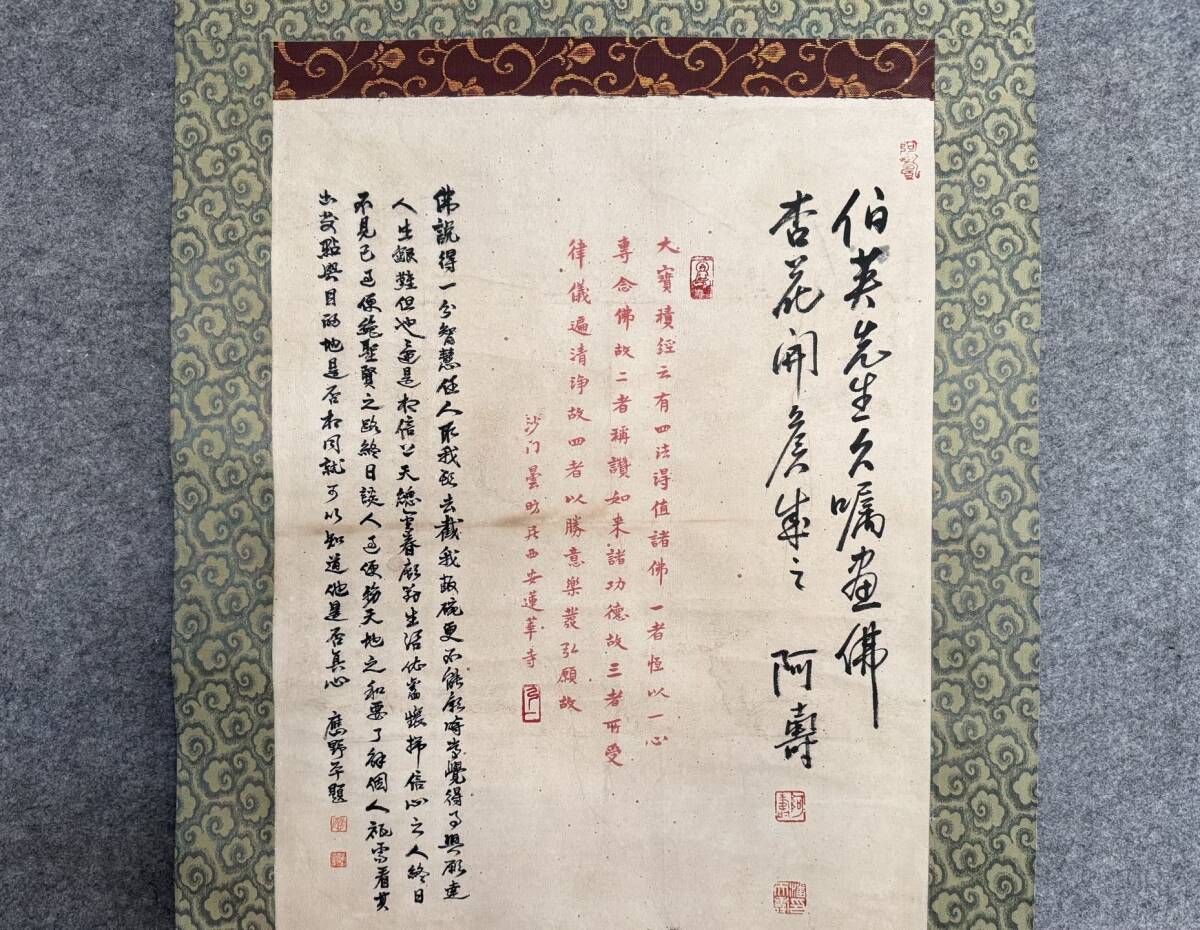 伯英先生久嘱画佛
杏花開候成之 阿壽
大寶積経云有四法得值諸佛一者恆以一心
專念佛故二者稱讚如来諸功德故三者所受
律儀遍清淨故四者以勝意樂發弘願故
沙门曇昉居西安蓮華寺
佛說得一分智慧任人取我致去截我敲碗更不能願時常覺得與願違
人生艱難但他還是相信上天總會眷顧對生活充滿信心之人終日
不見己過便絕聖賢之路終日談人過便傷天地之和要了解個人衹需看其
出发點與目的地是否相同就可以知道他是否真心 應野平題